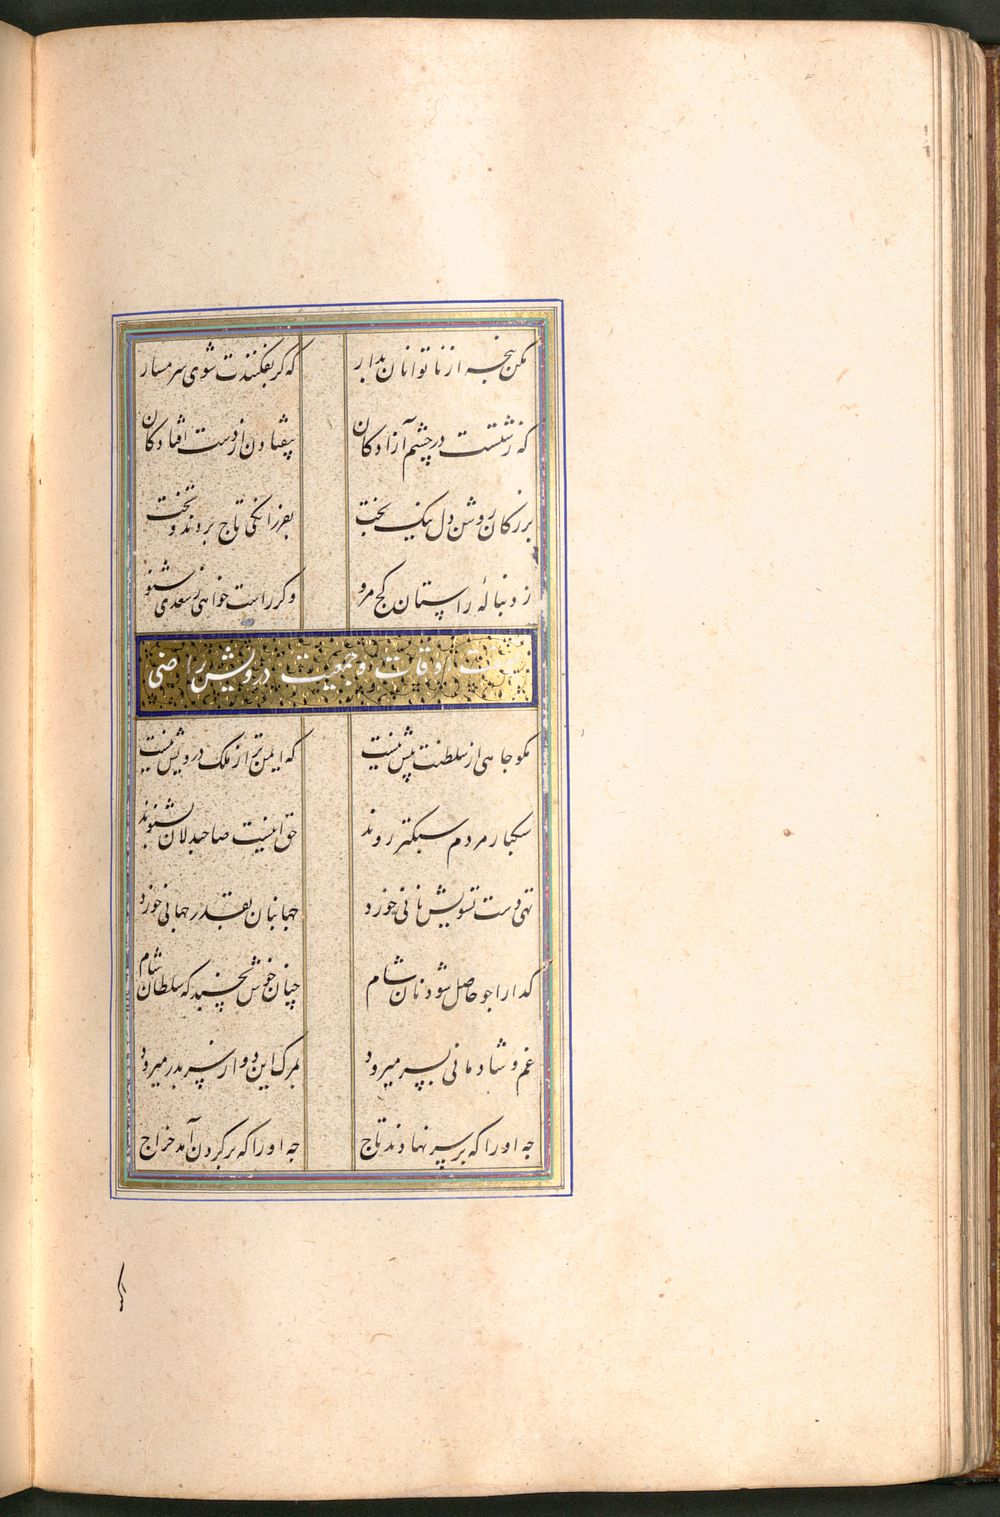 مکن پنجه از ناتوانان بدار که گر بفکنندت شوی شرمسار
که زشتست در چشم آزادکان بیفتادن از دست افتادکان
بزرکان روشن دل نیک بخت بفرزانکی تاج بردند و تخت
ز دنبالهٔ راستان کج مرو وکر راست خواهی ز سعدی شنو
صفت اوقات و جمعیت درویش راضی
مکو جاهی از سلطنت بیش نیست که ایمن تر از ملک درویش نیست
سبکبار مردم سبکتر روند حق اینست صاحبدلان بشنوند
تهی دست تشویش نانی خورد جهانبان بقدر جهانی خورد
کدا را چو حاصل شود نان شام چنان خوش بخسبد که سلطان شام
غم و شادمانی بسر میرود بمرک این دو از سر بدر میرود
چه او را که بر سر نهادند تاج چه او را که بر کردن آمد خراج